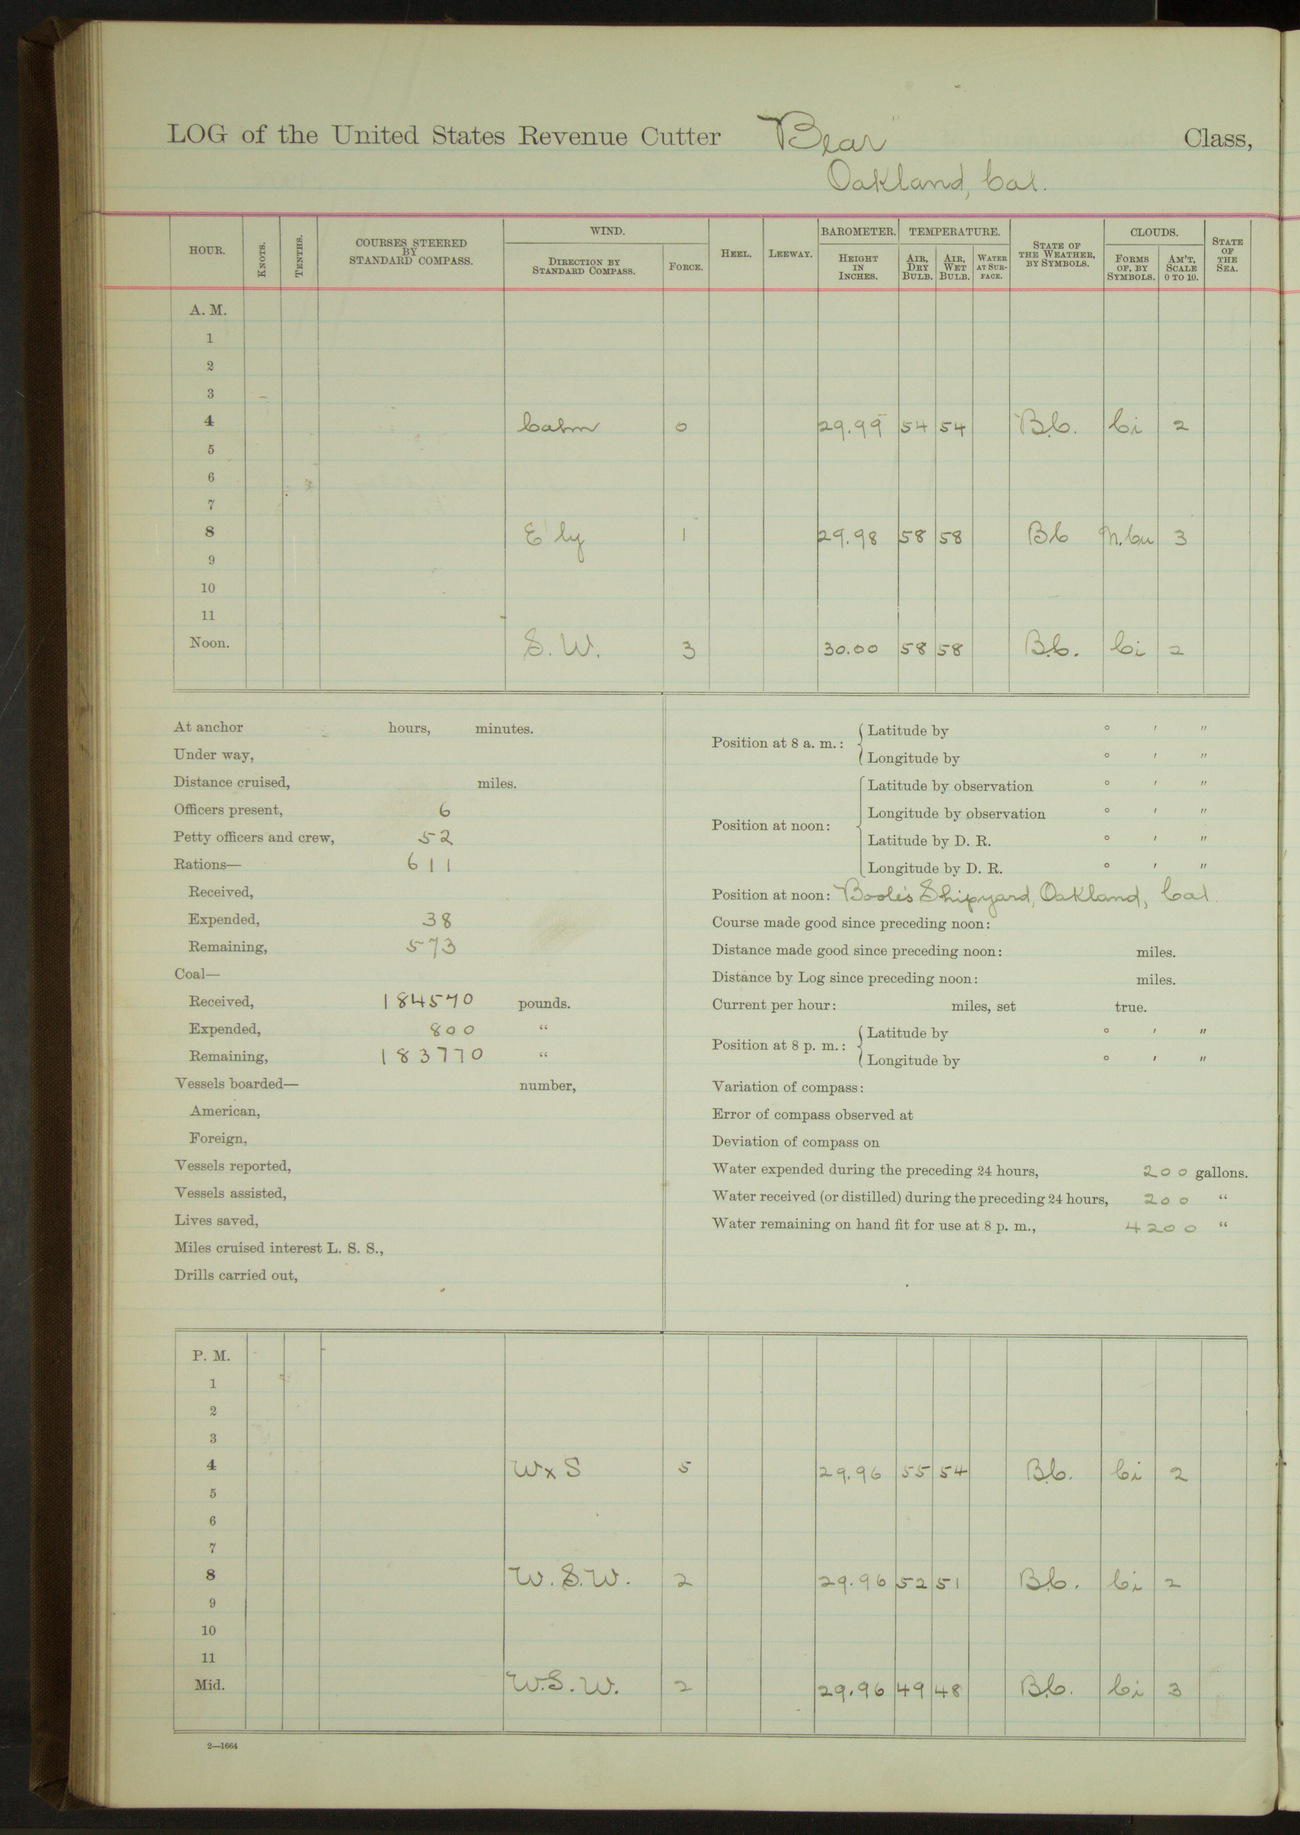 LOG of the United States Revenue Cutter "Bear" Class,
Oakland, Cal.
HOUR. KNOTS. TENTHS. COURSES STEERED BY STANDARD COMPASS. WIND. DIRECTION BY STANDARD COMPASS. FORCE. HEEL. LEEWAY. BAROMETER. HEIGHT IN INCHES. TEMPERATURE. AIR, DRY BULB. AIR, WET BULB. WATER AT SURFACE. STATE OF THE WEATHER, BY SYMBOLS. CLOUDS. FORMS OF, BY SYMBOLS. AM'T, SCALE 0 TO 10. STATE OF THE SEA.
A. M.
1
2
3
4 Calm 0 29.99 54 54 B.C. Ci 2
5
6
7
8 E'ly 1 29.98 58 58 BC N.Cu 3
9
10
11
Noon. S.W. 3 30.00 58 58 B.C. Ci 2
At anchor hours, minutes.
Under way,
Distance cruised, miles.
Officers present, 6
Petty officers and crew, 52
Rations— 611
Received,
Expended, 38
Remaining, 573
Coal—
Received, 184570 pounds.
Expended, 800 "
Remaining, 183770 "
Vessels boarded— number,
American,
Foreign,
Vessels reported,
Vessels assisted,
Lives saved,
Miles cruised interest L. S. S.,
Drills carried out,
Position at 8 a. m.: Latitude by ° ′ ″
Longitude by ° ′ ″
Position at noon: Latitude by observation ° ′ ″
Longitude by observation ° ′ ″
Latitude by D. R. ° ′ ″
Longitude by D. R. ° ′ ″
Position at noon: Boole's Shipyard, Oakland, Cal.
Course made good since preceding noon:
Distance made good since preceding noon: miles.
Distance by Log since preceding noon: miles.
Current per hour: miles, set true.
Position at 8 p. m.: Latitude by ° ′ ″
Longitude by ° ′ ″
Variation of compass:
Error of compass observed at
Deviation of compass on
Water expended during the preceding 24 hours, 200 gallons.
Water received (or distilled) during the preceding 24 hours, 200 "
Water remaining on hand fit for use at 8 p. m., 4200 "
P. M.
1
2
3
4 WxS 5 29.96 55 54 B.C. Ci 2
5
6
7
8 W.S.W. 2 29.96 52 51 B.C. Ci 2
9
10
11
Mid. W.S.W. 2 29.96 49 48 B.C. Ci 3
2—1664